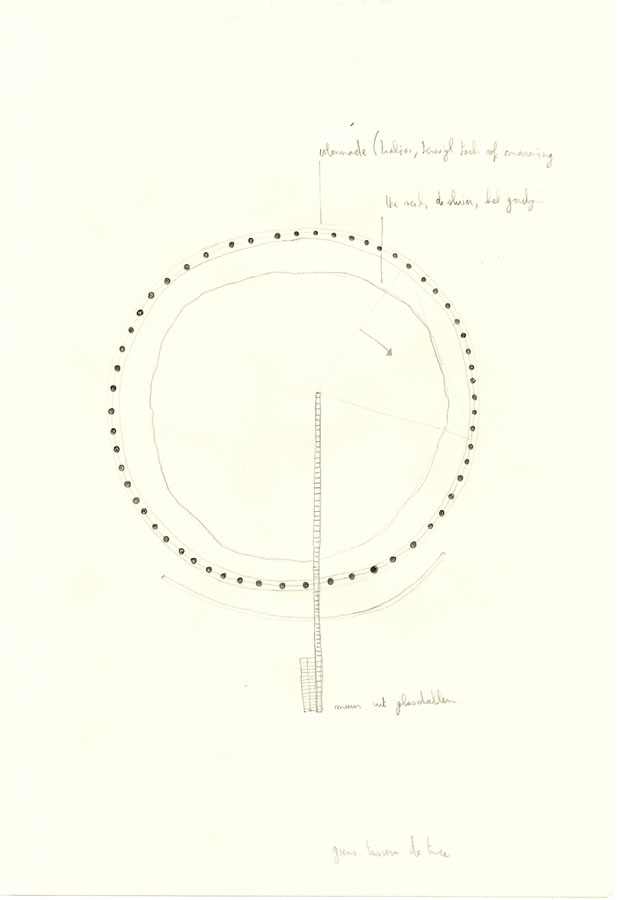 colonnade (tralies, terwijl toch ook omarming
het zeil, de sluier, het gordijn
muur uit glasdallen.
grens tussen de twee